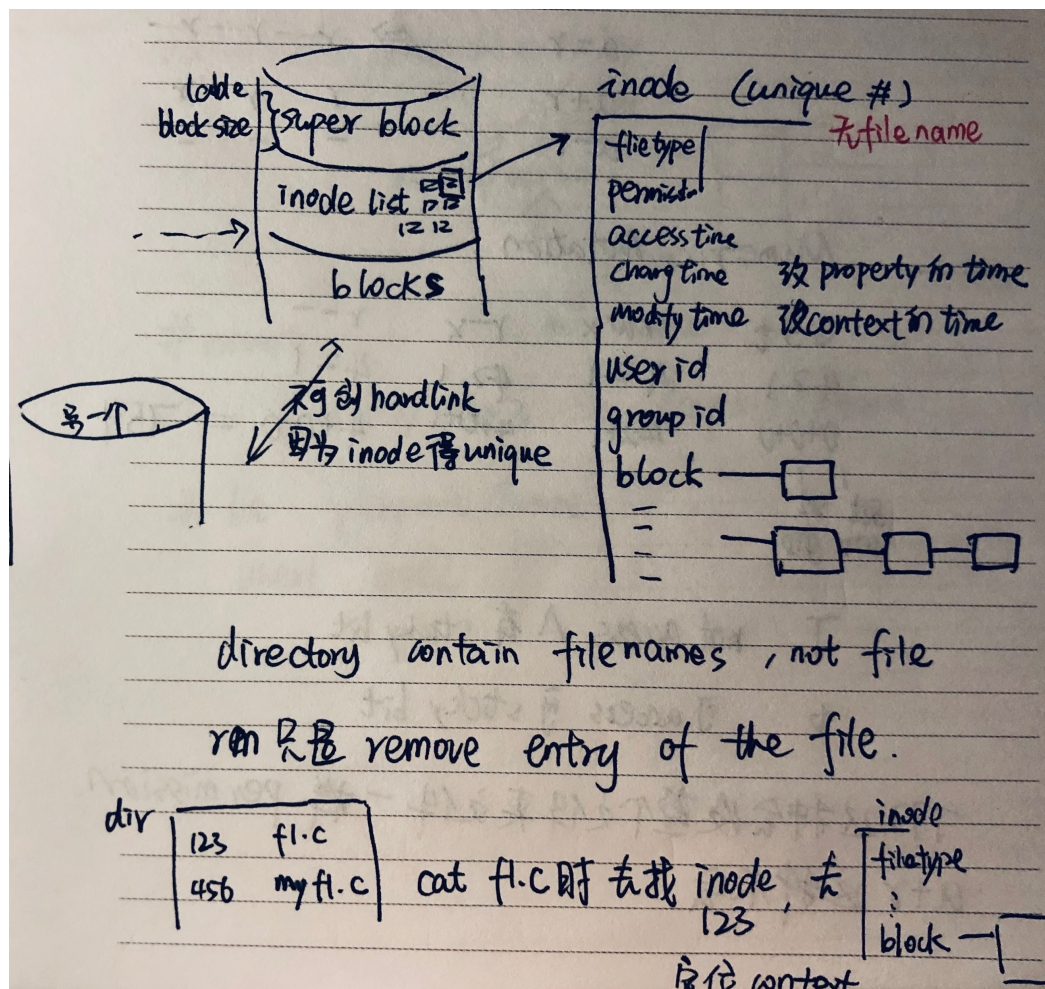 lable
block size
super block
inode list
12 12
12 12
12 12
blocks
inode (unique #)
无filename
flietype
permissin
access time
chang time 改 property 的 time
modify time 改context的 time
user id
group id
block
另一个
不可创 hardlink
因为 inode 得 unique
directory contain filenames , not file
rm 只是 remove entry of the file .
dir
123 f1.c
456 myf1.c
cat f1.c时 去找 inode, 去
123
inode
filetype
block
定位 context